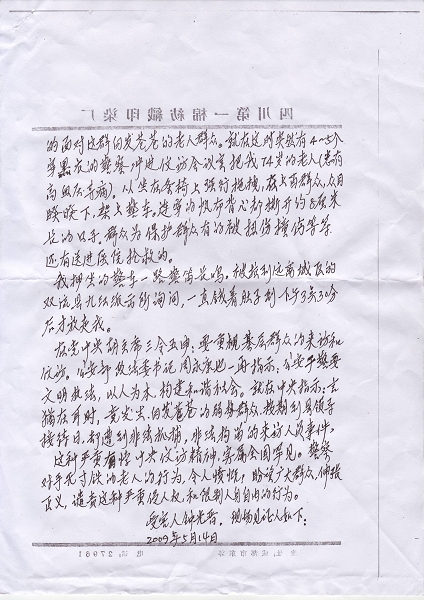 四川第一棉纺织印染厂
的面对这群白发苍苍的老人群众。就在这时突然有4-5个
穿黑衣的警察冲进信访会议室把我74岁的老人(患有
高血压等病)。从坐在会椅上强行拖拽,在上百群众,众目
睽睽下,架上警车,连穿的帆布背心都撕开约8厘米
长的口子。群众为保护群众有的被扭伤撞伤等等
还有送进医院抢救的。
我押坐的警车一路警笛长鸣。被拉到远离城区的
双流县九江派出所询问,一直饿着肚子到下午3点30分
后才放走我。
在党中央胡主席三令五申:要重视基层群众的来访和
信访。公安部政法委书记周永康也一再指示:公安干警要
文明执法,以人为本,构建和谐社会。就在中央指示:言
犹在耳时,竟发生白发苍苍的弱势群众,按期到县领导
接待日,却遭到非法抓捕,非法拘留的来访人员事件。
这种严重有悖中央信访精神,实属全国罕见。警察
对手无寸铁的老人的行为,令人愤慨,盼望广大群众,伸张
正义,谴责这种严重侵人权,和限制人身自由的行为。
受害人钟光蓉,现场见证人如下:
2009年5月14日
电话.27961